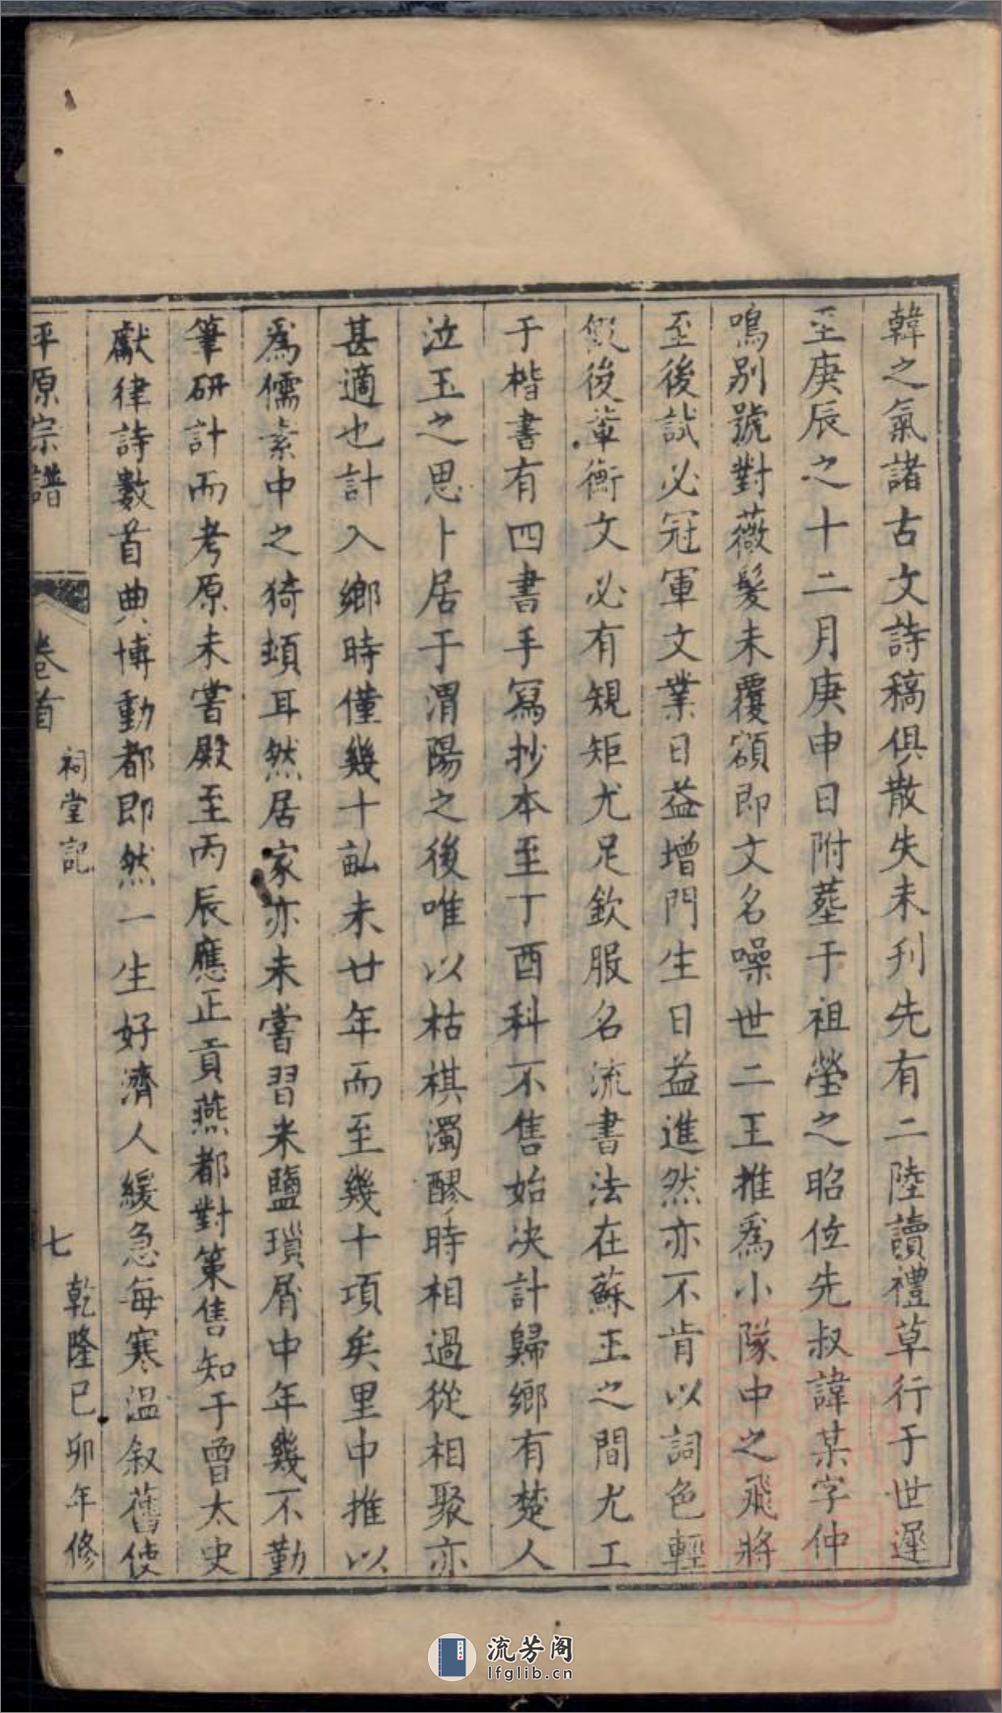 韓之氣諸古文詩稿俱散失未刋先有二陸讀禮草行于世遲
至庚辰之十二月庚申日附塟于祖塋之昭位先叔諱某字仲
鳴别號對薇髮未覆額即文名噪世二王推爲小隊中之飛將
至後試必冠軍文業日益增門生日益進然亦不肯以詞色輕
假後軰衡文必有規矩尤足欽服名流書法在蘇王之間尤工
于楷書有四書手寫抄本至丁酉科不售始决計歸鄉有楚人
泣玉之思卜居于渭陽之後唯以枯棋濁醪時相過從相聚亦
甚適也計入鄉時僅幾十畝未廿年而至幾十項矣里中推以
爲儒素中之猗頓耳然居家亦未嘗習米鹽瑣屑中年幾不勤
筆研計而考原未嘗殿至丙辰應正貢燕都對策售知于曾太史
獻律詩數首典博動都即然一生好濟人緩急每寒温叙舊使
平原宗譜
卷首
祠堂記
七
乾隆已卯年修
流芳阁
lfglib.cn